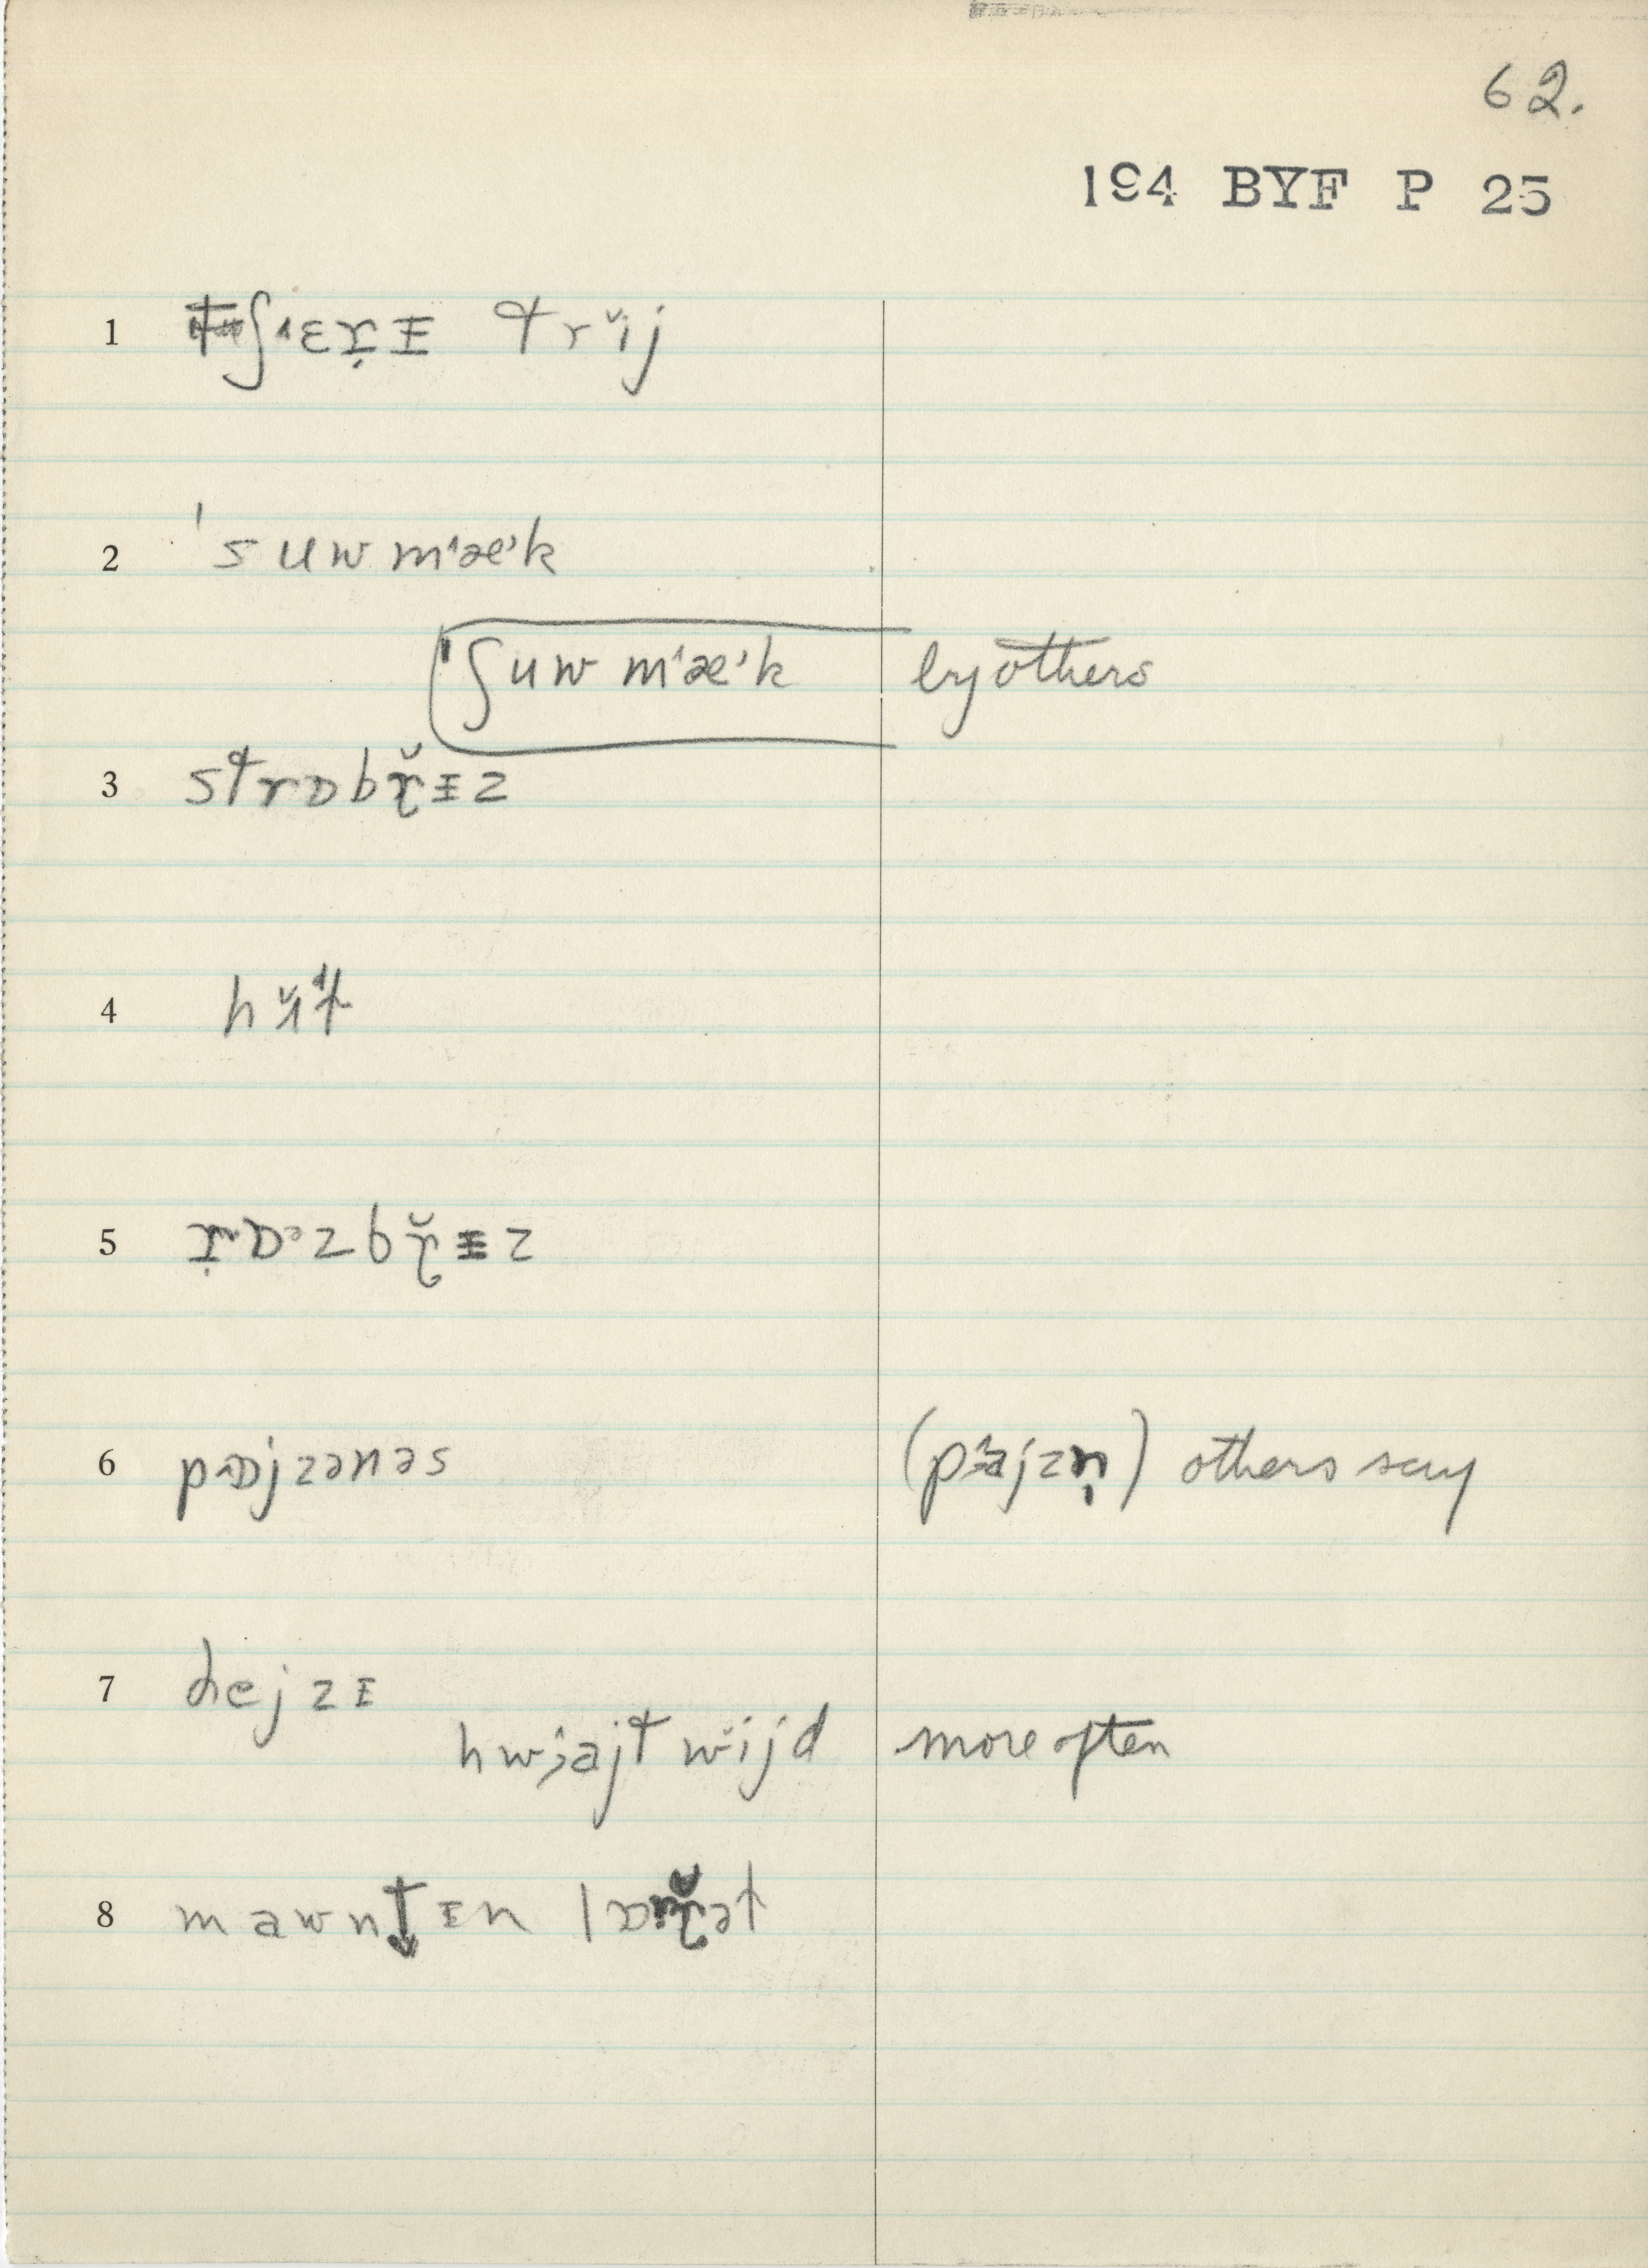 62.
194 BYF P 25
1 ʃ˄ɛṛᵻ trĭj
2 'suwm˄æ˒k
ʃuwm˄æ˒k by others
3 strɒbɤ̆ᵻz
4 hɤ̆t
5 ṛɒ˒zbɤ̆ᵻz
6 p˄ɒjzənəs (p˄ajzṇ) others say
7 dejzɪ
hwajtwĭjd more often
8 mawntɪn